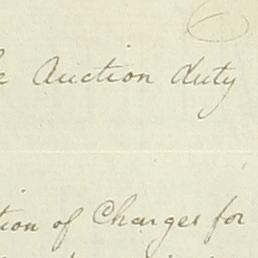 Auction duty
tion of Charges for